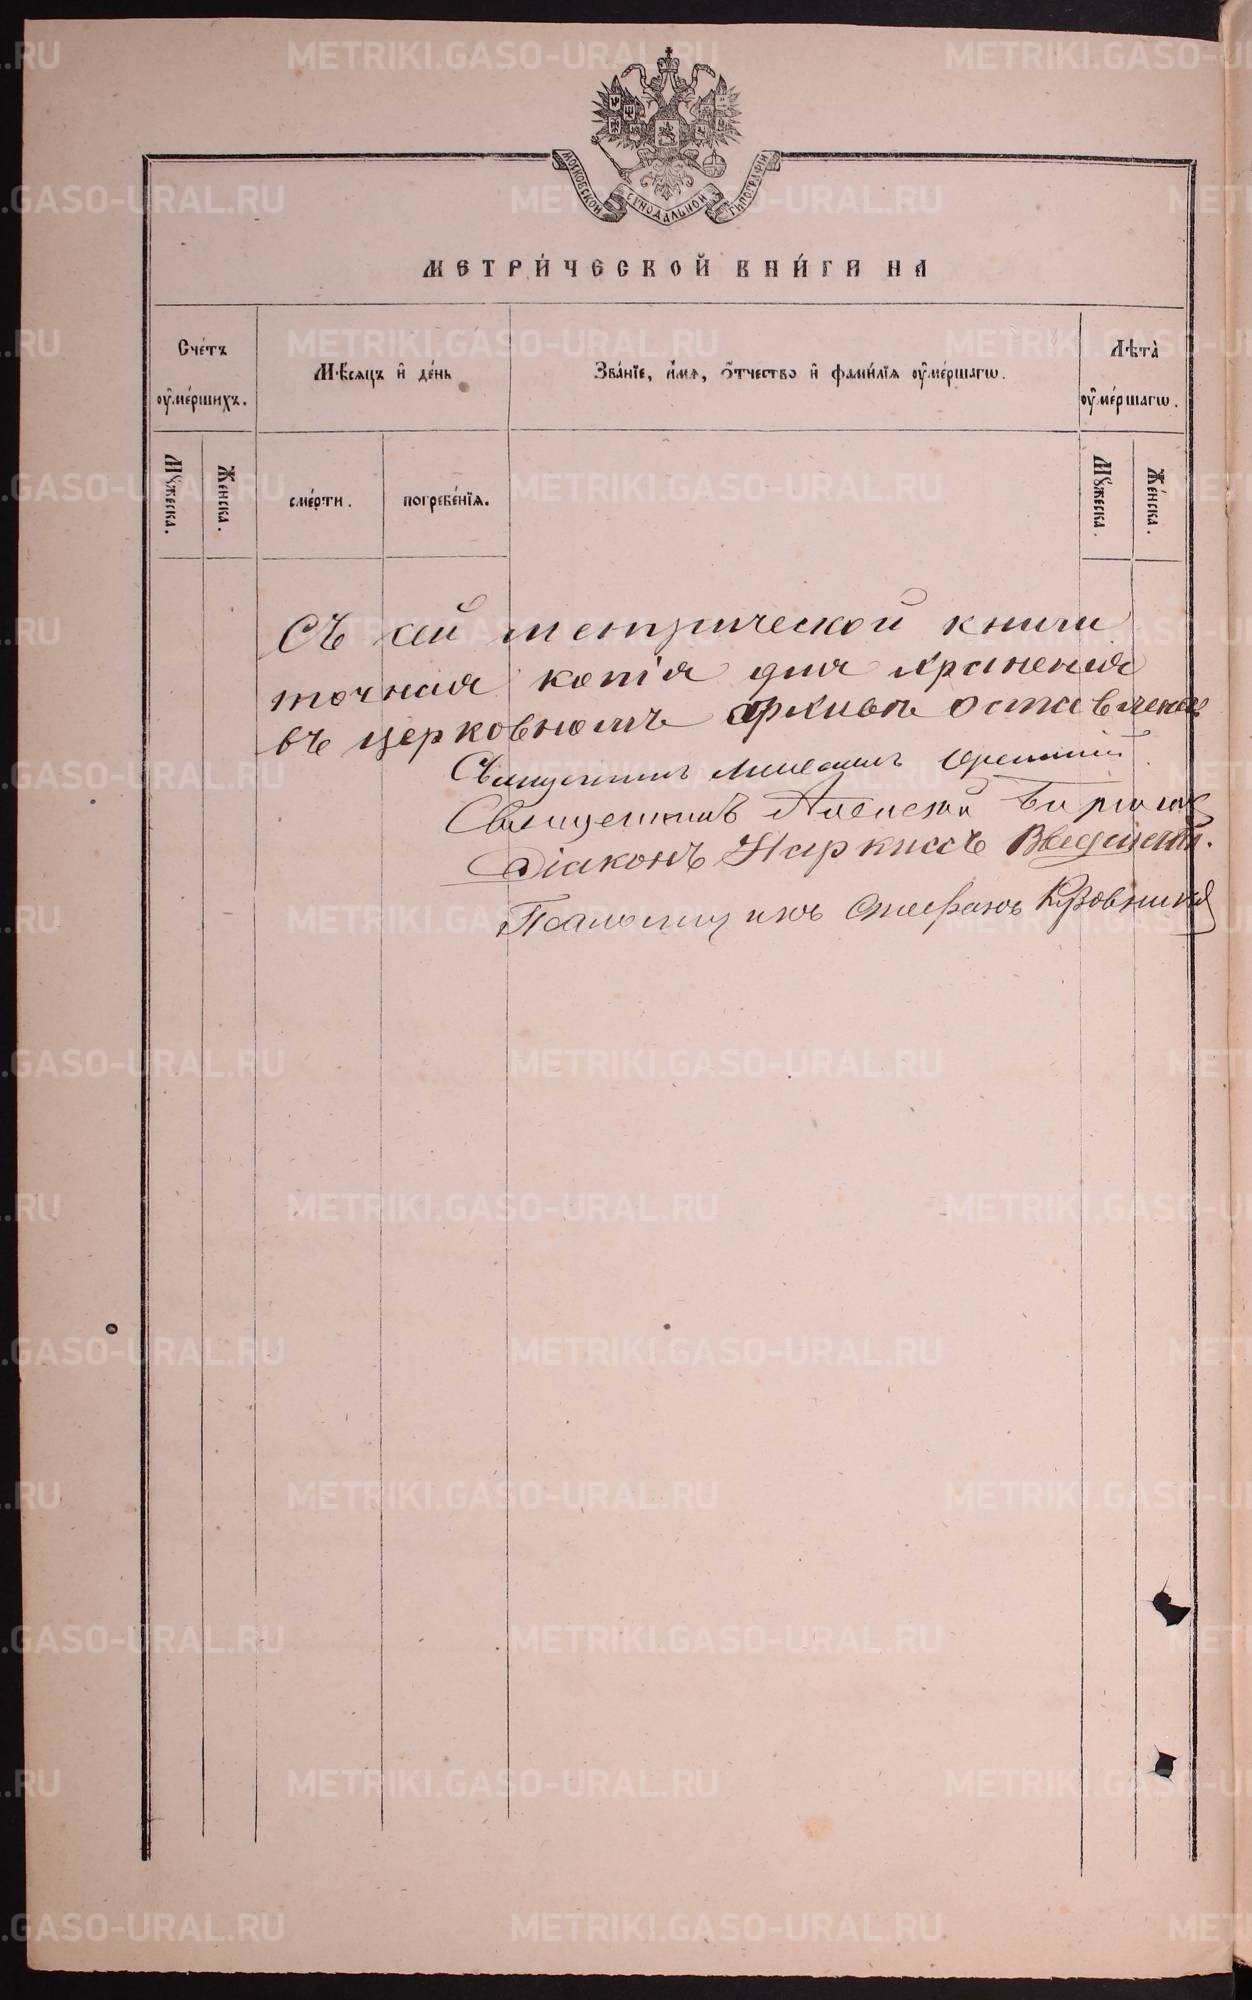 МОСКОВСКОЙ СѴНОДАЛЬНОЙ ТИПОГРАФІИ
МЕТРИ́ЧЕСКОЙ КНИ́ГИ НА
Сче́тъ оу҆ме́ршихъ.
Мѣ́сяцъ и҆ де́нь
Зва́нїе, и҆́мѧ, ѻ҆́тчество и҆ фами́лїѧ оу҆ме́ршагѡ.
Лѣ́та оу҆ме́ршагѡ.
Мꙋ́жеска.
Же́нска.
сме́рти.
погребе́нїѧ.
Мꙋ́жеска.
Же́нска.
Съ сей метрической книги
точная копія для храненія
въ церковномъ архивѣ оставлена
Священникъ
Священникъ Алексей
Діаконъ Наркиссъ Введенск.
Псаломщикъ Стефанъ
METRIKI.GASO-URAL.RU